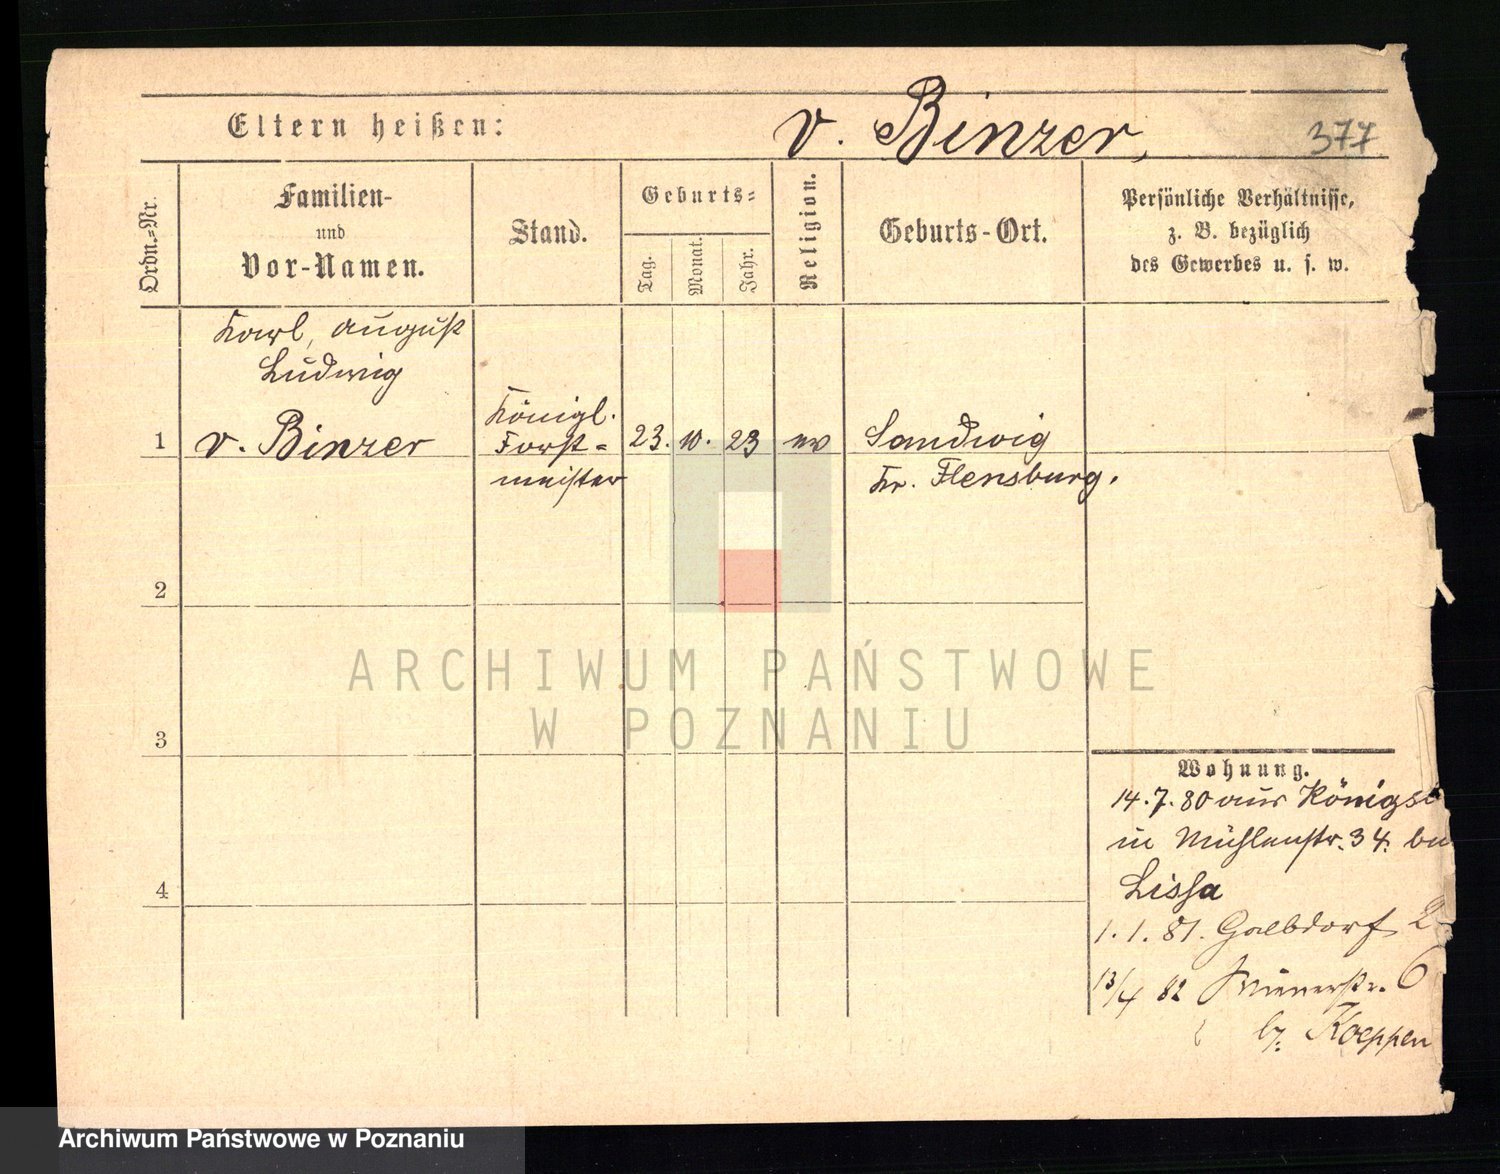 Eltern heißen:
v. Binzer,
377
Ordn.-Nr.
Familien-
und
Vor-Namen.
Stand.
Geburts-
Tag.
Monat.
Jahr.
Religion.
Geburts-Ort.
Persönliche Verhältnisse,
z. B. bezüglich
des Gewerbes u. s. w.
Karl, August
Ludwig
1
v. Binzer
Königl.
Forst-
meister
23. 10. 23
ev
Sandwig
Kr. Flensburg.
2
3
4
Wohnung.
14.7.80 aus
in Mühlenstr. 34.
Lissa
1.1.81.
13/4 82
6
by. Koeppen
ARCHIWUM PAŃSTWOWE
W POZNANIU
Archiwum Państwowe w Poznaniu